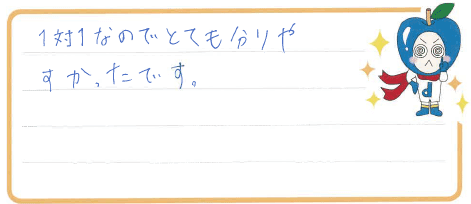 1対1なのでとても分りや
すかったです。